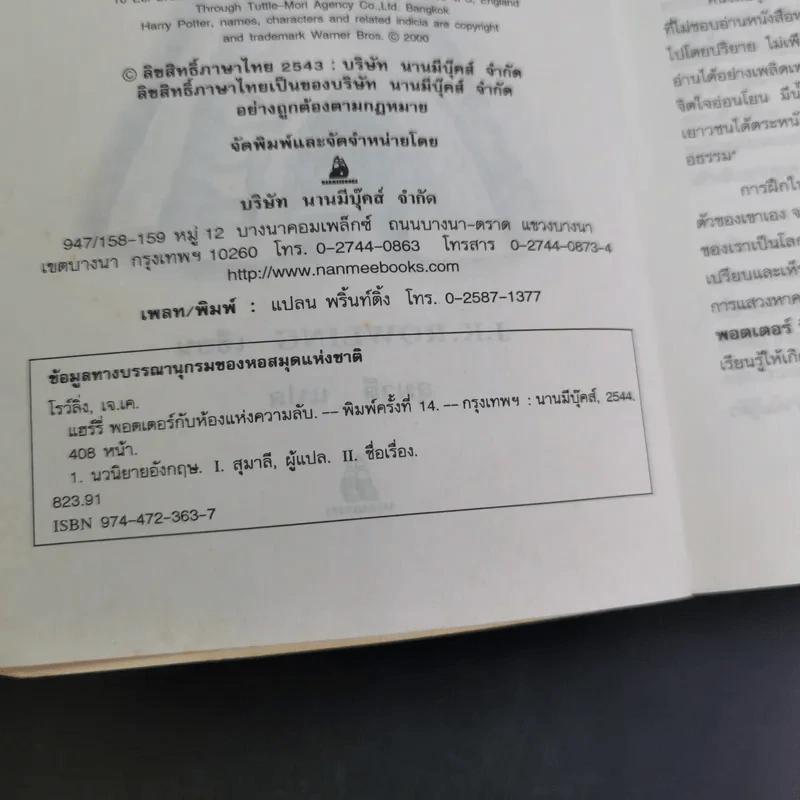 Through Tuttle-Mori Agency Co.,Ltd. Bangkok
Harry Potter, names, characters and related indicia are copyright
and trademark Warner Bros. © 2000
© ลิขสิทธิ์ภาษาไทย 2543 : บริษัท นานมีบุ๊คส์ จำกัด
ลิขสิทธิ์ภาษาไทยเป็นของบริษัท นานมีบุ๊คส์ จำกัด
อย่างถูกต้องตามกฎหมาย
จัดพิมพ์และจัดจำหน่ายโดย
บริษัท นานมีบุ๊คส์ จำกัด
947/158-159 หมู่ 12 บางนาคอมเพล็กซ์ ถนนบางนา-ตราด แขวงบางนา
เขตบางนา กรุงเทพฯ 10260 โทร. 0-2744-0863 โทรสาร 0-2744-0873-4
http://www.nanmeebooks.com
เพลท/พิมพ์ : แปลน พริ้นท์ติ้ง โทร. 0-2587-1377
ข้อมูลทางบรรณานุกรมของหอสมุดแห่งชาติ
โรว์ลิ่ง, เจ.เค.
แฮร์รี่ พอตเตอร์กับห้องแห่งความลับ. -- พิมพ์ครั้งที่ 14. -- กรุงเทพฯ : นานมีบุ๊คส์, 2544.
408 หน้า.
1. นวนิยายอังกฤษ. I. สุมาลี, ผู้แปล. II. ชื่อเรื่อง.
823.91
ISBN 974-472-363-7
ที่ไม่ชอบอ่านหนังสือ
ไปโดยปริยาย
อ่านได้อย่างเพลิดเพ
จิตใจอ่อนโยน
เยาวชนได้ตระหนั
อธรรม"
การฝึกใ
ตัวของเขาเอง
ของเราเป็นโล
เปรียบและเห็
การแสวงหาค
พอตเตอร์
เรียนรู้ให้เกิ